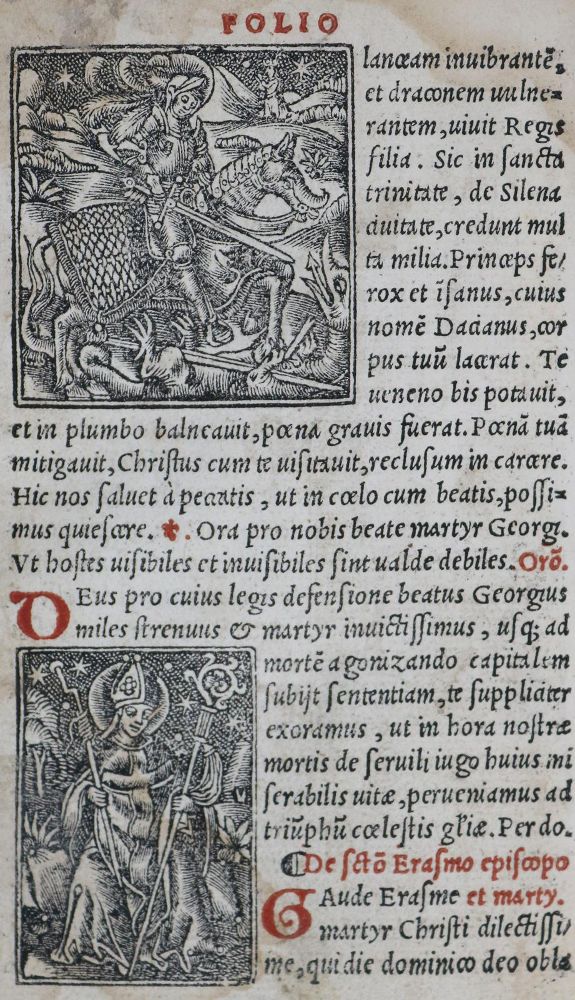 FOLIO
lanceam inuibrantē,
et draconem uulne=
rantem, uiuit Regis
filia. Sic in sancta
trinitate, de Silena
ciuitate, credunt mul
ta milia. Princeps fe/
rox et īsanus, cuius
nomē Dacianus, cor
pus tuū lacerat. Te
ueneno bis potauit,
et in plumbo balneauit, pœna grauis fuerat. Pœnā tuā
mitigauit, Christus cum te uisitauit, reclusum in carcere.
Hic nos saluet à peccatis, ut in cœlo cum beatis, possi=
mus quiescere. ✝. Ora pro nobis beate martyr Georgi.
Vt hostes uisibiles et inuisibiles sint ualde debiles. Orō.
DEus pro cuius legis defensione beatus Georgius
miles strenuus & martyr inuictissimus, usq; ad
mortē agonizando capitalem
subijt sententiam, te suppliciter
exoramus, ut in hora nostræ
mortis de seruili iugo huius mi
serabilis uitæ, perueniamus ad
triūphū cœlestis gľiæ. Per do.
¶De sctō Erasmo episcopo
GAude Erasme et marty.
martyr Christi dilectissi/
me, qui die dominico deo obla